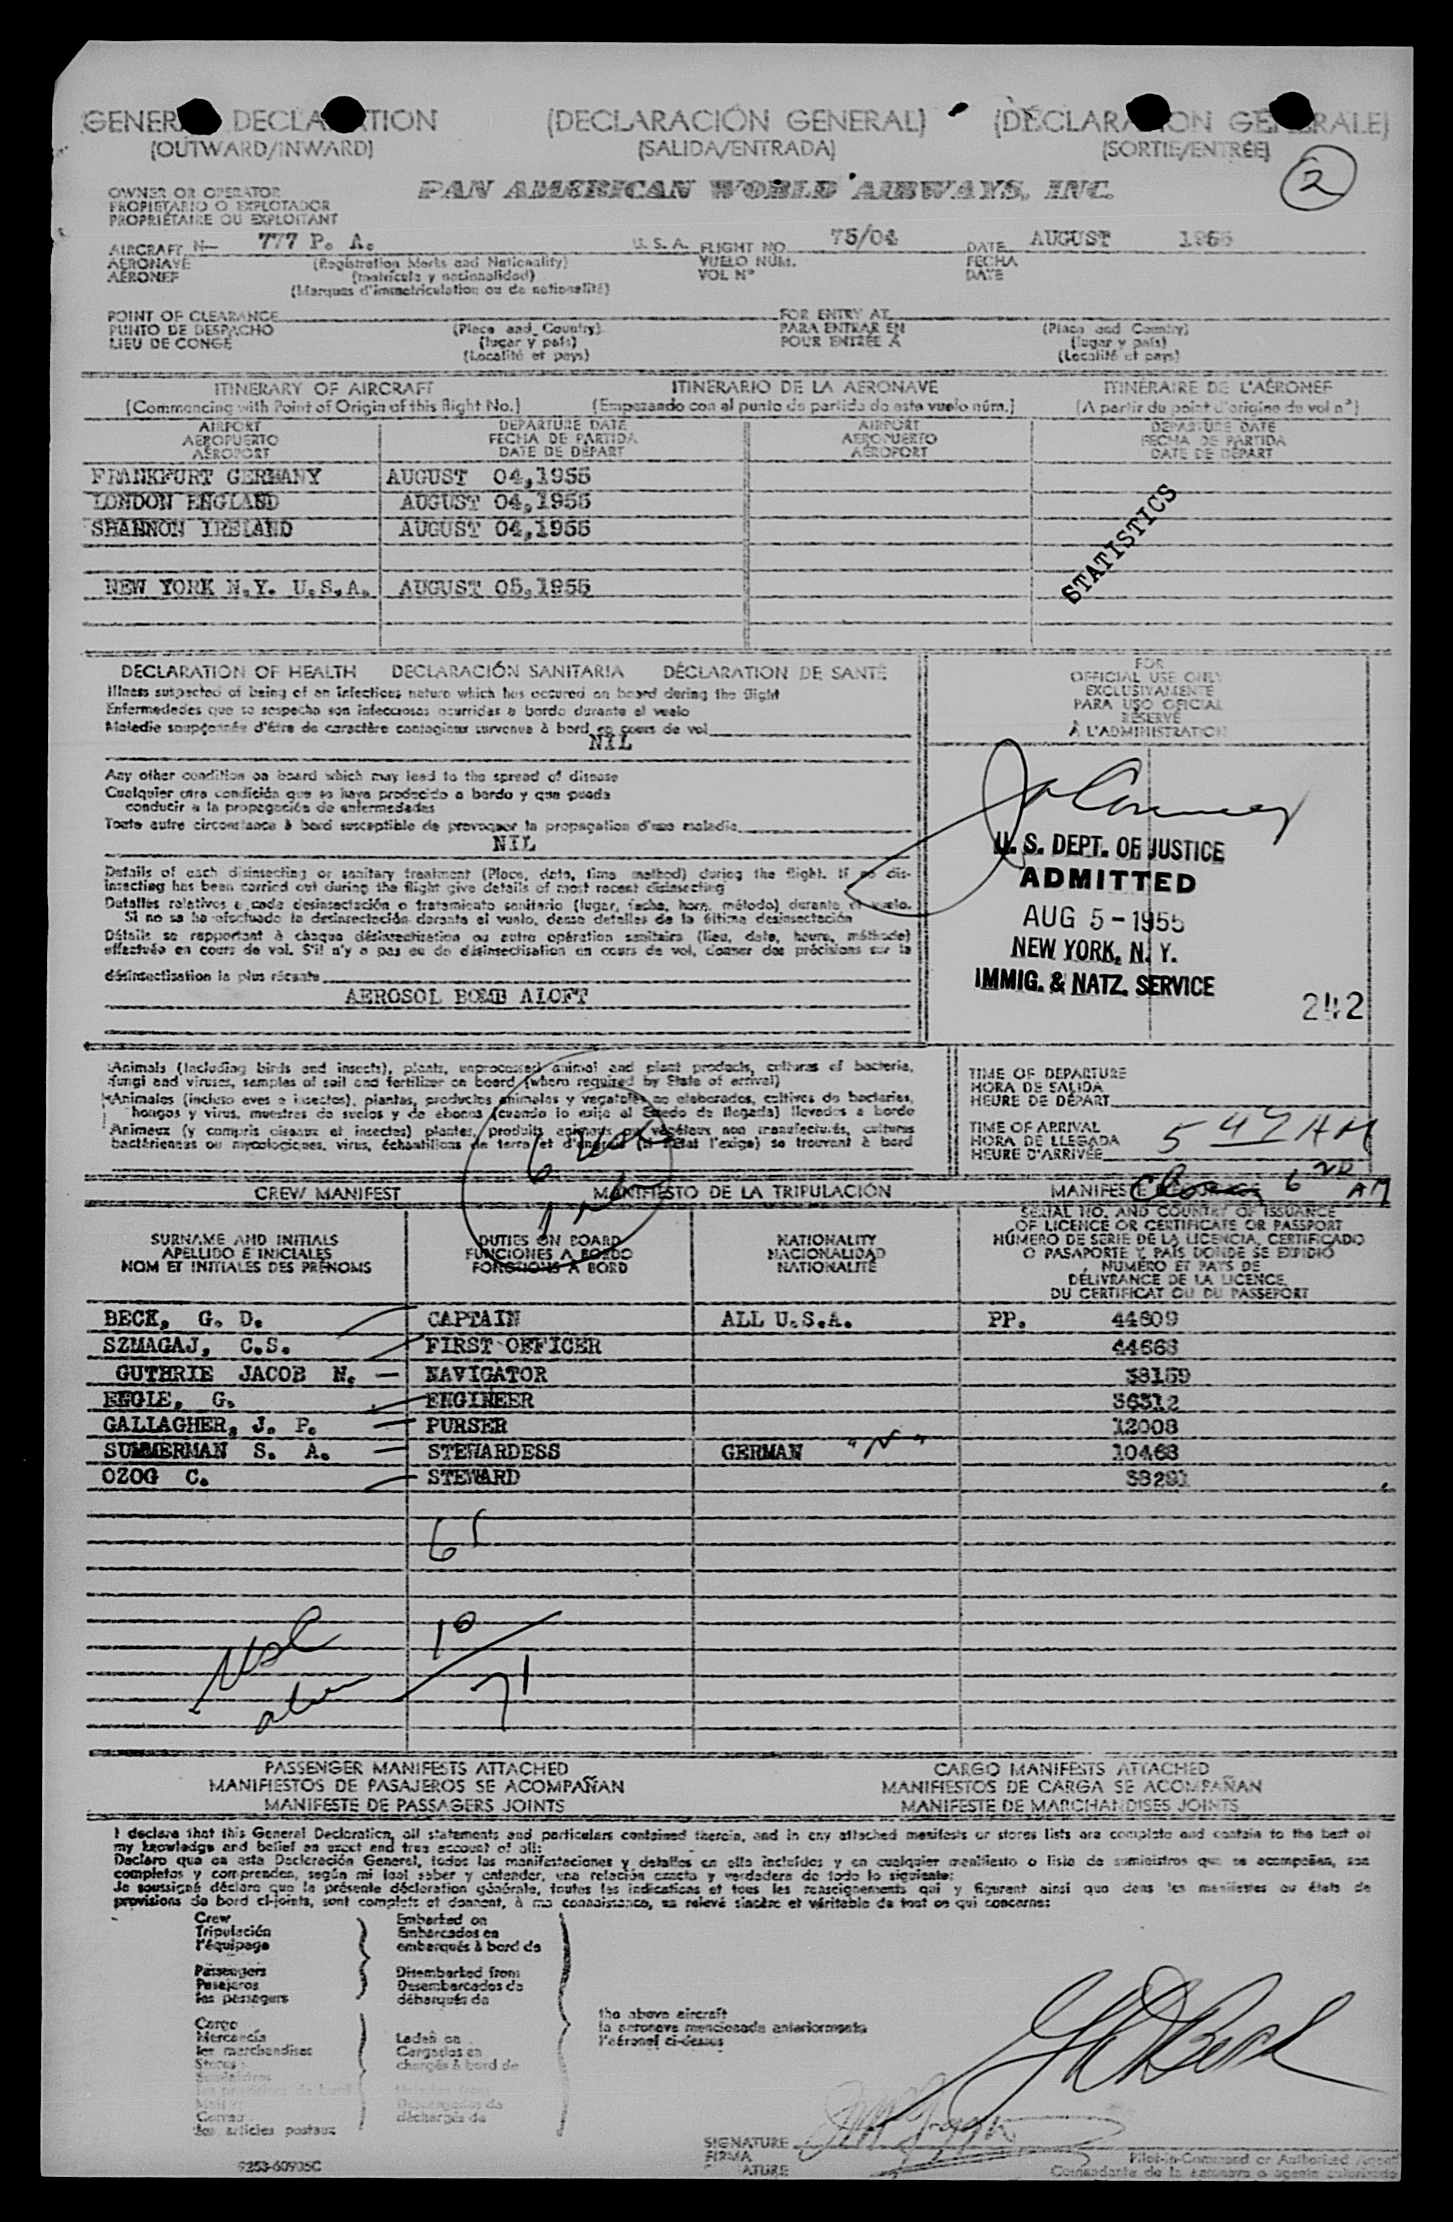 GENERAL DECLARATION (DECLARACIÓN GENERAL) (DÉCLARATION GÉNÉRALE)
(OUTWARD/INWARD) (SALIDA/ENTRADA) (SORTIE/ENTRÉE)
2
OWNER OR OPERATOR
PROPIETARIO O EXPLOTADOR
PROPRIÉTAIRE OU EXPLOITANT
PAN AMERICAN WORLD AIRWAYS, INC.
AIRCRAFT N- 777 P. A. U. S. A. FLIGHT NO. 75/04 DATE AUGUST 1955
AERONAVE (Registration Marks and Nationality) VUELO NÚM. FECHA
AÉRONEF (matrícula y nacionalidad) VOL N° DATE
(Marques d'immatriculation ou de nationalité)
POINT OF CLEARANCE FOR ENTRY AT
PUNTO DE DESPACHO (Place and Country) PARA ENTRAR EN (Place and Country)
LIEU DE CONGÉ (lugar y país) POUR ENTRÉE À (lugar y país)
(Localité et pays) (Localité et pays)
ITINERARY OF AIRCRAFT ITINERARIO DE LA AERONAVE ITINÉRAIRE DE L'AÉRONEF
(Commencing with Point of Origin of this flight No.) (Empezando con el punto de partida de este vuelo núm.) (A partir du point d'origine du vol n°)
AIRPORT DEPARTURE DATE AIRPORT DEPARTURE DATE
AEROPUERTO FECHA DE PARTIDA AEROPUERTO FECHA DE PARTIDA
AÉROPORT DATE DE DÉPART AÉROPORT DATE DE DÉPART
FRANKFURT GERMANY AUGUST 04,1955
LONDON ENGLAND AUGUST 04,1955
SHANNON IRELAND AUGUST 04,1955
STATISTICS
NEW YORK N.Y. U.S.A. AUGUST 05,1955
DECLARATION OF HEALTH DECLARACIÓN SANITARIA DÉCLARATION DE SANTÉ
Illness suspected of being of an infectious nature which has occured on board during the flight
Enfermedades que se sospecha son infecciosas ocurridas a bordo durante el vuelo
Maladie soupçonnée d'être de caractère contagieux survenue à bord en cours de vol
NIL
Any other condition on board which may lead to the spread of disease
Cualquier otra condición que se haya producido a bordo y que pueda
conducir a la propagación de enfermedades
Toute autre circonstance à bord susceptible de provoquer la propagation d'une maladie
NIL
Details of each disinsecting or sanitary treatment (Place, date, time method) during the flight. If no dis-
insecting has been carried out during the flight give details of most recent disinsecting
Detalles relativos a cada desinsectación o tratamiento sanitario (lugar, fecha, hora, método) durante el vuelo.
Si no se ha efectuado la desinsectación durante el vuelo, dense detalles de la última desinsectación
Détails se rapportant à chaque désinsectisation ou autre opération sanitaire (lieu, date, heure, méthode)
effectuée en cours de vol. S'il n'y a pas eu de désinsectisation en cours de vol, donner des précisions sur la
désinsectisation la plus récente
AEROSOL BOMB ALOFT
FOR
OFFICIAL USE ONLY
EXCLUSIVAMENTE
PARA USO OFICIAL
RÉSERVÉ
À L'ADMINISTRATION
U. S. DEPT. OF JUSTICE
ADMITTED
AUG 5 - 1955
NEW YORK, N. Y.
IMMIG. & NATZ. SERVICE
242
Animals (including birds and insects), plants, unprocessed animal and plant products, cultures of bacteria,
fungi and viruses, samples of soil and fertilizer on board (where required by State of arrival)
Animales (incluso aves e insectos), plantas, productos animales y vegetales no elaborados, cultivos de bacterias,
hongos y virus, muestras de suelos y de abonos (cuando lo exija el Estado de llegada) llevados a bordo
Animaux (y compris oiseaux et insectes) plantes, produits animaux ou végétaux non manufacturés, cultures
bactériennes ou mycologiques, virus, échantillons de terre et d'engrais (si l'état l'exige) se trouvant à bord
TIME OF DEPARTURE
HORA DE SALIDA
HEURE DE DÉPART
TIME OF ARRIVAL
HORA DE LLEGADA
HEURE D'ARRIVÉE
5 47 AM
CREW MANIFEST MANIFIESTO DE LA TRIPULACIÓN MANIFESTE
6 AM
SURNAME AND INITIALS DUTIES ON BOARD NATIONALITY SERIAL NO. AND COUNTRY OF ISSUANCE
APELLIDO E INICIALES FUNCIONES A BORDO NACIONALIDAD OF LICENCE OR CERTIFICATE OR PASSPORT
NOM ET INITIALES DES PRÉNOMS FONCTIONS À BORD NATIONALITÉ NÚMERO DE SERIE DE LA LICENCIA, CERTIFICADO
O PASAPORTE Y PAÍS DONDE SE EXPIDIÓ
NUMÉRO ET PAYS DE
DÉLIVRANCE DE LA LICENCE,
DU CERTIFICAT OU DU PASSEPORT
BECK, G. D. CAPTAIN ALL U.S.A. PP. 44609
SZMAGAJ, C.S. FIRST OFFICER 44568
GUTHRIE JACOB N. NAVIGATOR 38159
ENGLE, G. ENGINEER 36312
GALLAGHER, J. P. PURSER 12008
SUMMERMAN S. A. STEWARDESS GERMAN "N" 10468
OZOG C. STEWARD 38291
61
10
71
PASSENGER MANIFESTS ATTACHED CARGO MANIFESTS ATTACHED
MANIFIESTOS DE PASAJEROS SE ACOMPAÑAN MANIFIESTOS DE CARGA SE ACOMPAÑAN
MANIFESTE DE PASSAGERS JOINTS MANIFESTE DE MARCHANDISES JOINTS
I declare that this General Declaration, all statements and particulars contained therein, and in any attached manifests or stores lists are complete and contain to the best of
my knowledge and belief an exact and true account of all:
Declaro que en esta Declaración General, todas las manifestaciones y detalles en ella incluídos y en cualquier manifiesto o lista de suministros que se acompañen, son
completos y comprenden, según mi leal saber y entender, una relación exacta y verdadera de todo lo siguiente:
Je soussigné déclare que la présente déclaration générale, toutes les indications et tous les renseignements qui y figurent ainsi que dans les manifestes ou états de
provisions de bord ci-joints, sont complets et donnent, à ma connaissance, un relevé sincère et véritable de tout ce qui concerne:
Crew Embarked on
Tripulación Embarcados en
l'équipage embarqués à bord de
Passengers Disembarked from
Pasajeros Desembarcados de
les passagers débarqués de
the above aircraft
la aeronave mencionada anteriormente
l'aéronef ci-dessus
Cargo
Mercancía Laden on
les marchandises Cargados en
Stores chargés à bord de
Suministros
Correo déchargés de
les articles postaux
SIGNATURE
FIRMA
Pilot-in-Command or Authorized Agent
Comandante de la aeronave o agente autorizado